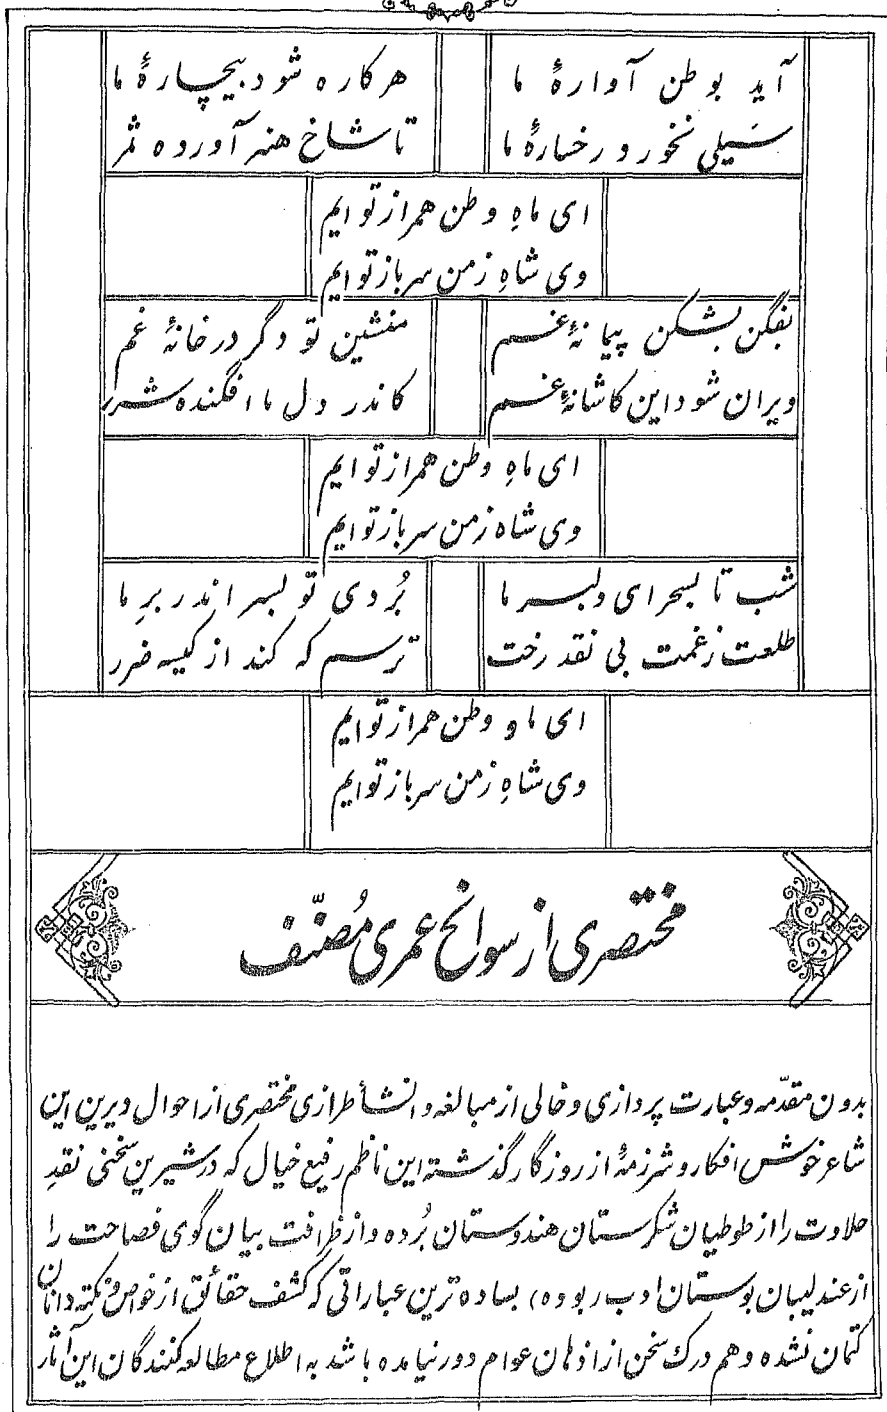 آید بوطن آوارهٔ ما هرکاره شود بیچارهٔ ما
سَیلی نخورد رخسارهٔ ما تا شاخ هنر آورده ثمر
ای ماهِ وطن همراز توایم
وی شاهِ زمن سرباز توایم
بفگن بشکن پیمانهٔ غم منشین تو دگر در خانهٔ غم
ویران شود این کاشانهٔ غم کاندر دل ما افگنده شرر
ای ماهِ وطن همراز توایم
وی شاه زمن سرباز توایم
شب تا بسحر ای دلبر ما بُردی تو بسر اندر برِ ما
طلعت ز غمت بی نقد رخت ترسم که کند از کیسه ضرر
ای ماه وطن همراز توایم
وی شاهِ زمن سرباز توایم
مختصری از سوانح عمری مُصنّف
بدون مقدّمه وعبارت پردازی وخالی از مبالغه وانشأ طرازی مختصری از احوال دیرین این
شاعر خوش افکار وشرزمهٔ از روزگار گذشته این ناظم رفیع خیال که در شیرین سخنی نقدِ
حلاوت را از طوطیان شکرستان هندوستان بُرده واز ظرافت بیان گوی فصاحت را
از عندلیبان بوستان ادب ربوده، بساده ترین عباراتی که کشف حقائق از خواص ونکته دانان
کتمان نشده وهم درک سخن از اذهان عوام دور نیامده باشد به اطلاع مطالعه کنندگان این آثار